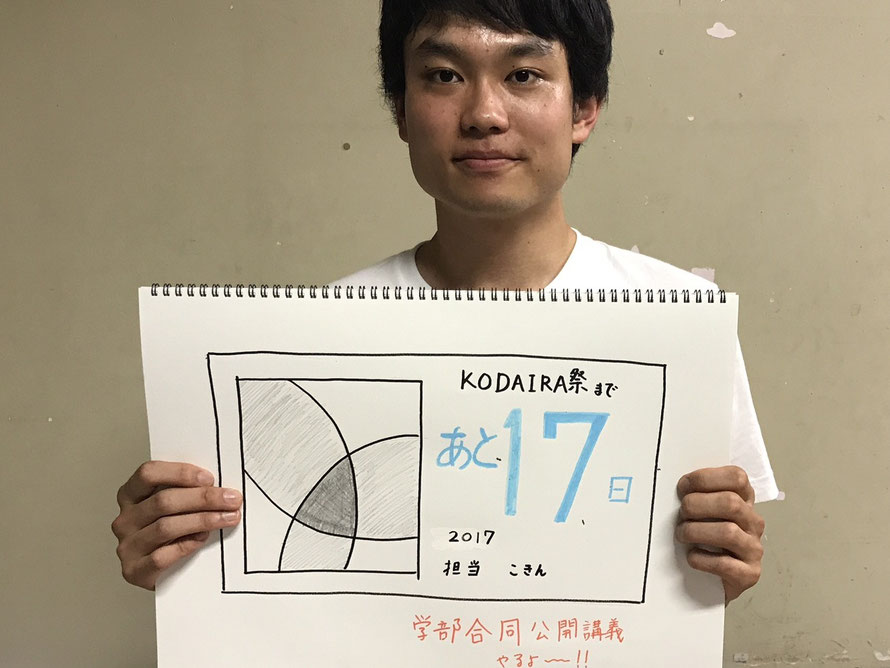 KODAIRA祭まで
あと17日
2017
担当 こきん
学部合同公開講義
やるよ〜!!